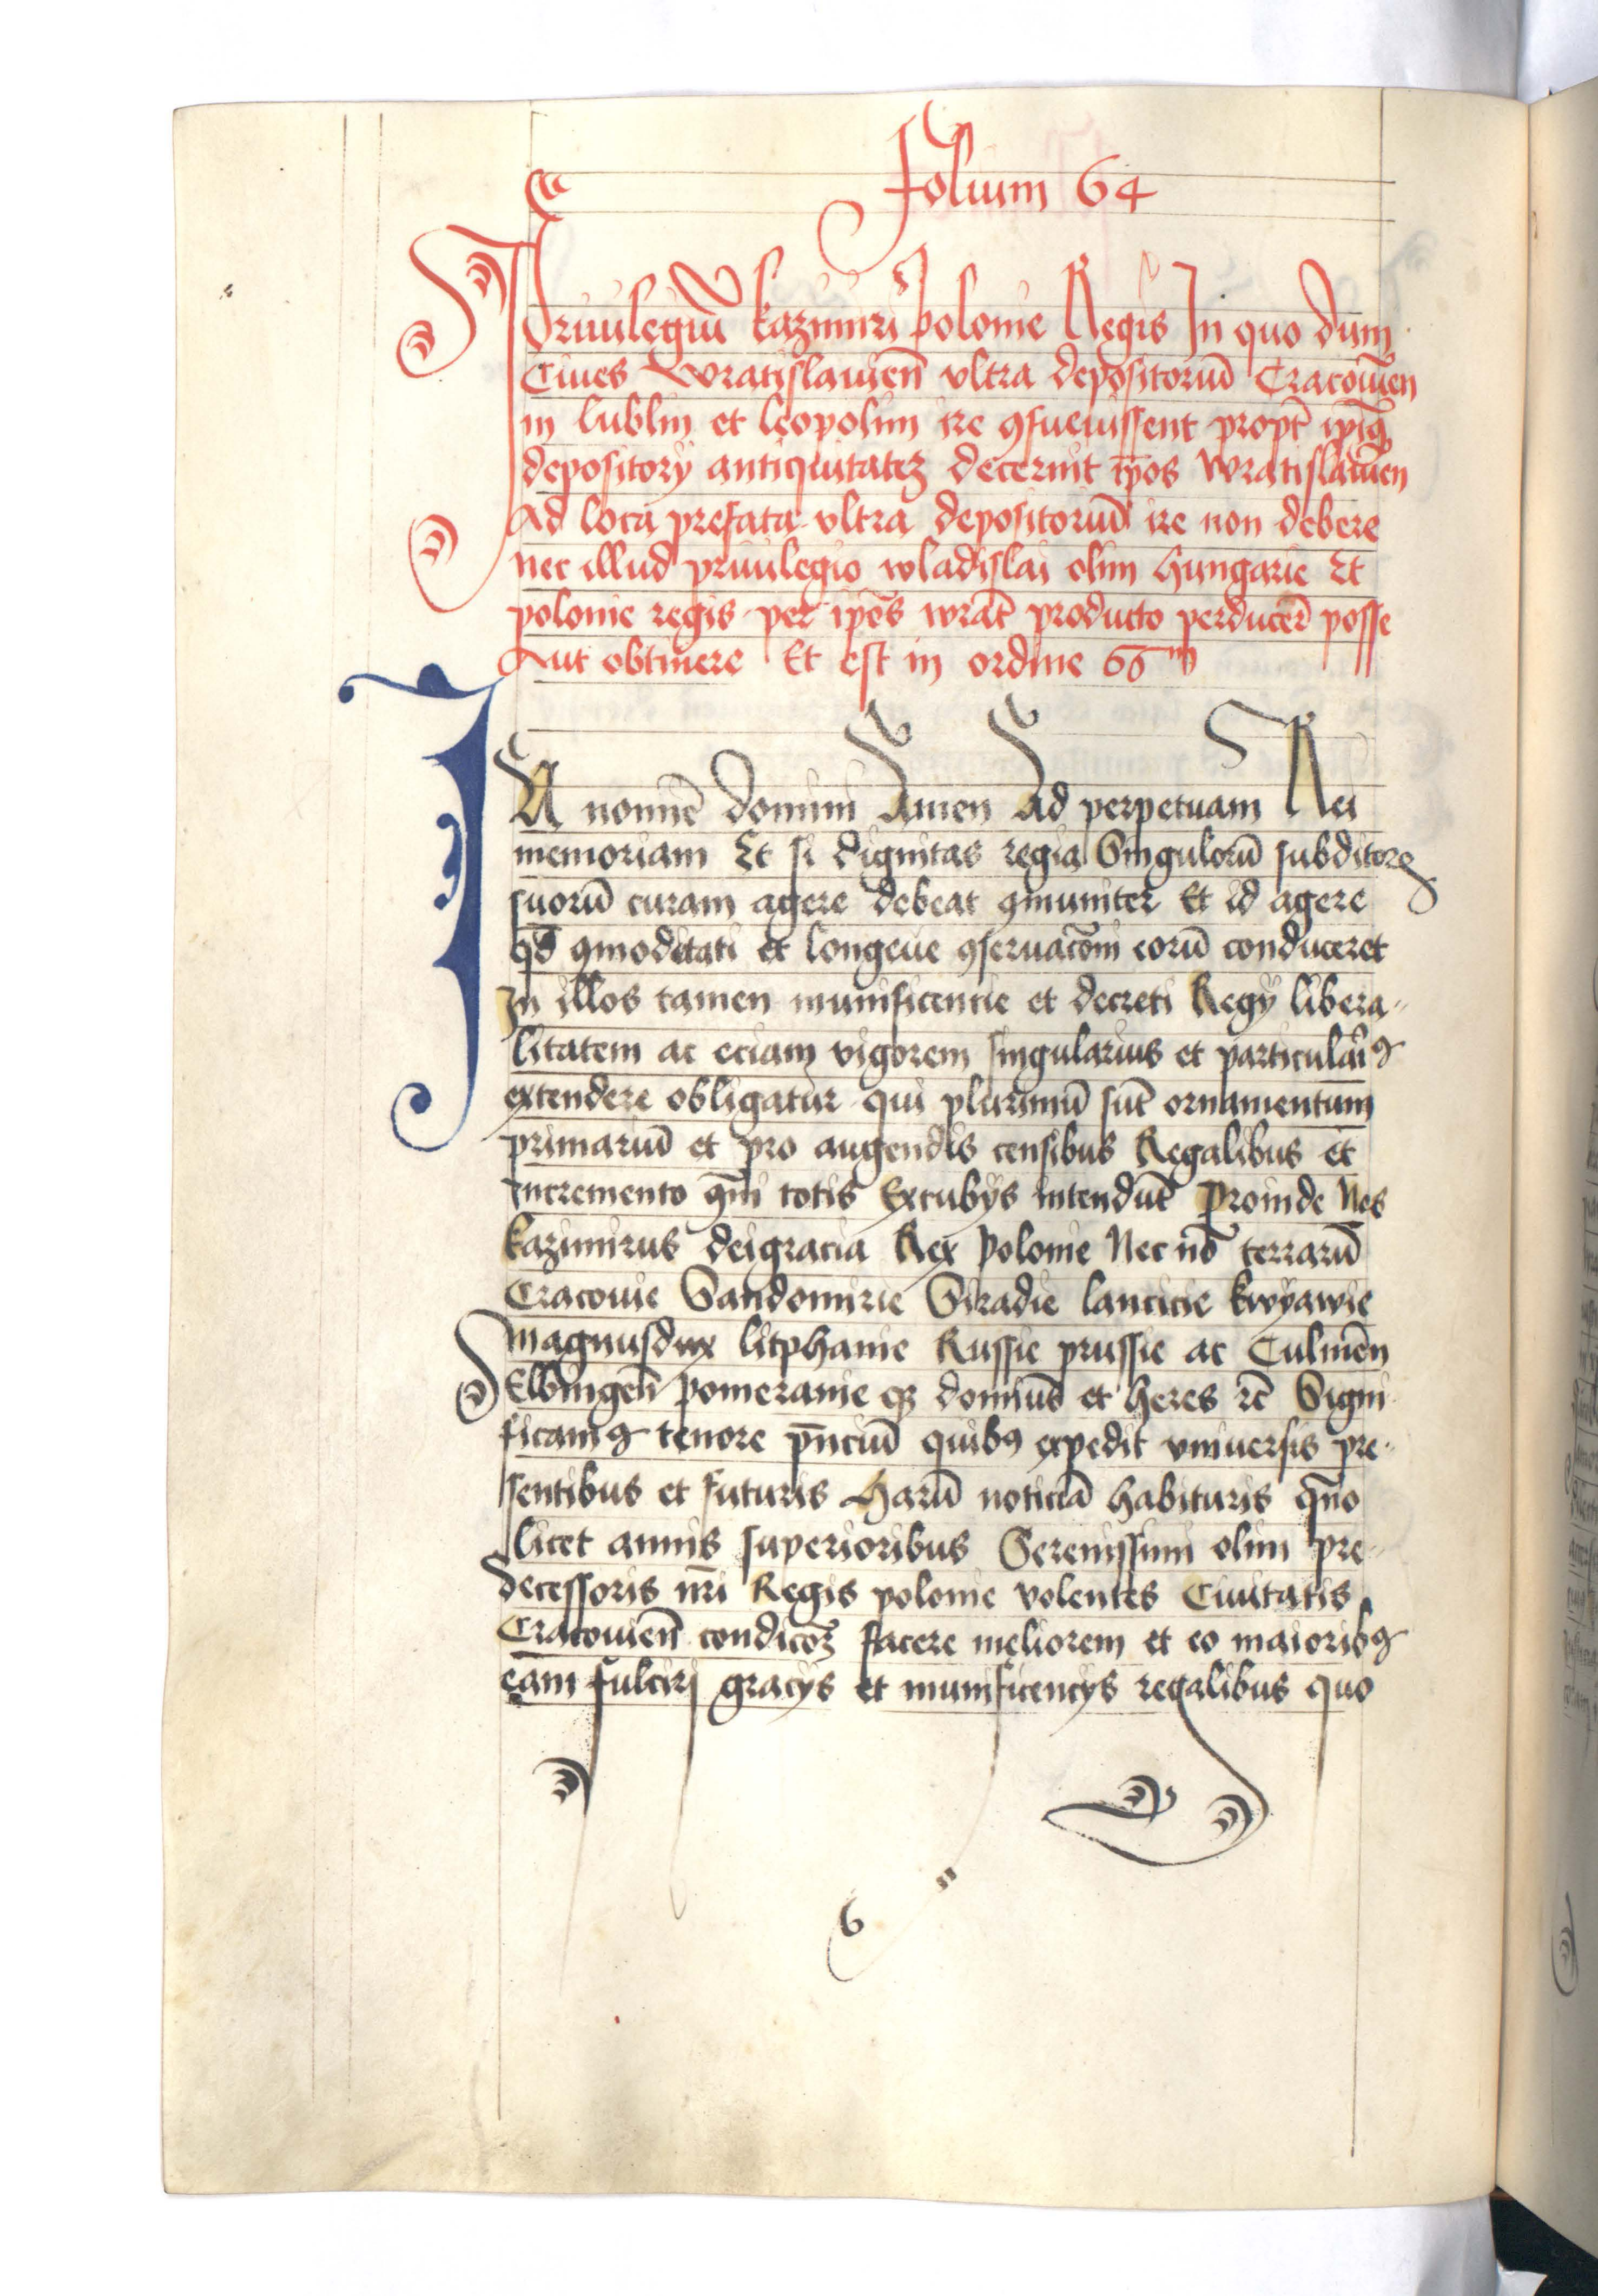 Folium 64
Priuilegiū kazimiri polonie Regis In quo dum
Ciues wratislauien̄ vltra depositoriū Cracouien̄
in lublin et leopolim ire ꝯsueuissent propt̄ ip̄iꝗ
depositorÿ antiquitateȝ decernit ip̄os wratislauien̄
Ad loca prefata vltra depositoriū ire non debere
nec illud priuilegio wladislai olim hungarie Et
polonie regis per ip̄os wrat̄ producto perducer̄ posse
Aut obtinere Et est in ordine 66ᵐ
IN nomīe domini Amen Ad perpetuam Rei
memoriam Et si dignitas regia Singulorū subditorꝝ
suorū curam agere debeat ꝯmuniter Et id agere
qd̄ ꝯmoditati et longeue ꝯseruac̄oni eorū conduceret
In illos tamen munificentie et decreti Regÿ libera〃
litatem ac eciam vigorem singularius et particulariꝰ
extendere obligatur qui plurimū sūt ornamentum
primariū et pro augendis censibus Regalibus et
incremento qm̄ totis Excubÿs intendūt Proinde Nos
kazimirus deigracia Rex polonie Nec nō terrarū
Cracouie Sandomirie Siradie lancicie kwÿawie
magnusdux litphanie Russie prussie ac Culmēn
Elbingen̄ pomeranie qꝫ domīus et heres rc̄ Signi
ficamꝰ tenore pn̄ciū quibꝰ expedit vniuersis pre〃
sentibus et futuris Harū noticiā habituris qūo
licet annis superioribus Serenissimi olim pre〃
decessoris nr̄i Regis polonie volentes Ciuitatis
Cracouien̄ condicōȝ facere meliorem et eo maioribꝰ
eam fulciri gracÿs et munificencÿs regalibus quo